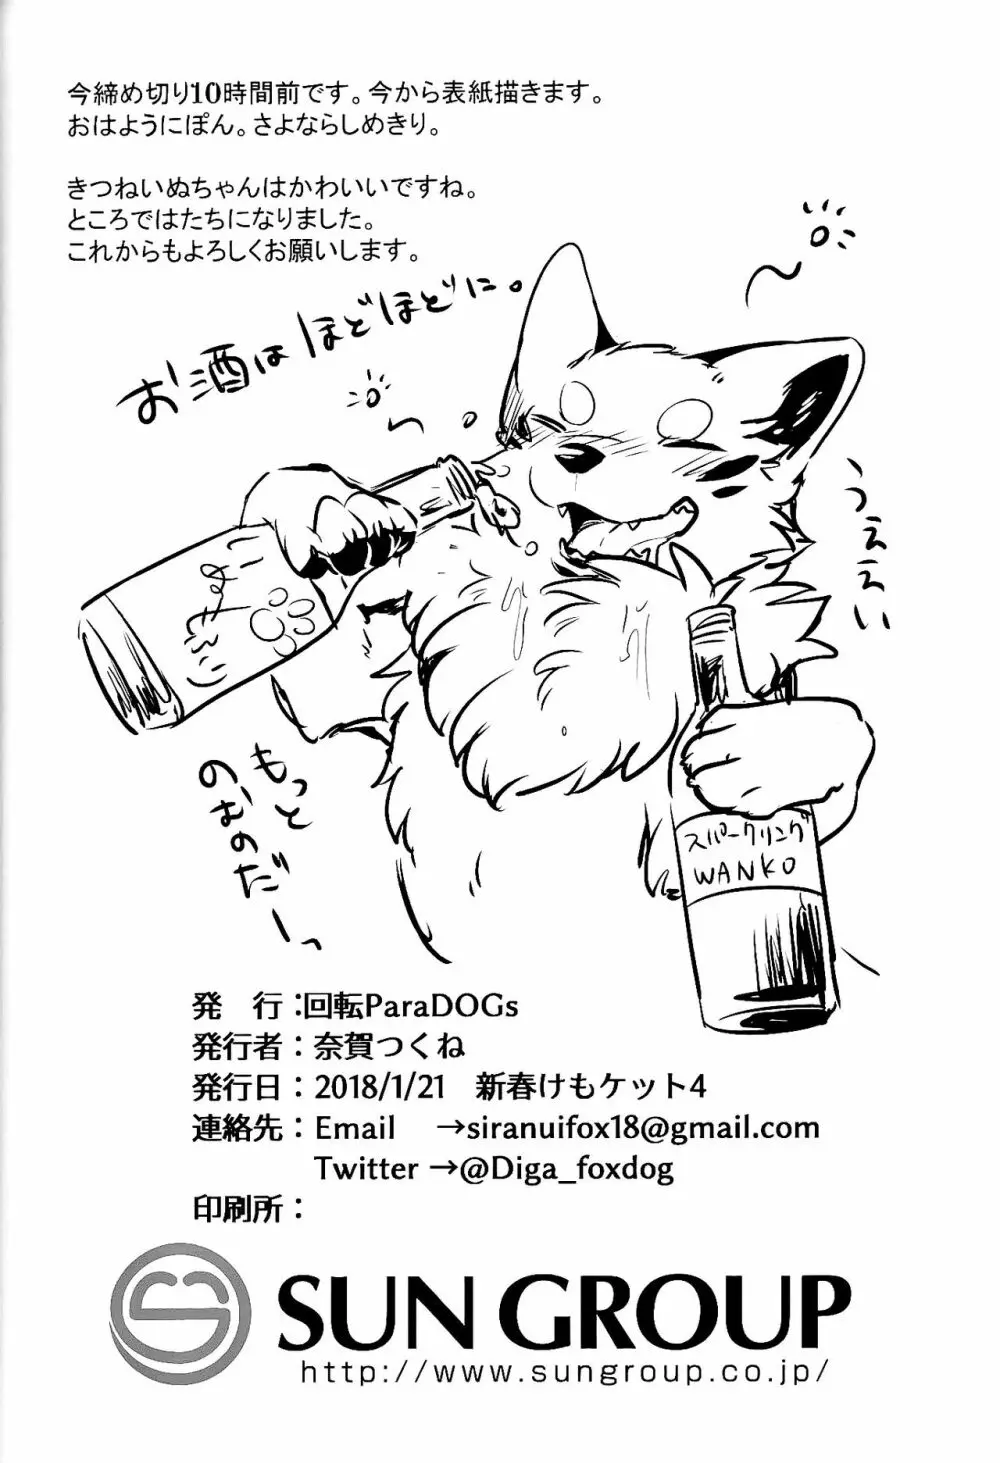 今締め切り10時間前です。今から表紙描きます。
おはようにぽん。さよならしめきり。
きつねいぬちゃんはかわいいですね。
ところではたちになりました。
これからもよろしくお願いします。
お酒はほどほどに。
うええい
もっと
のむのだーっ
スパークリング
WANKO
発　行：回転ParaDOGs
発行者：奈賀つくね
発行日：2018/1/21　新春けもケット4
連絡先：Email　→siranuifox18@gmail.com
Twitter →@Diga_foxdog
印刷所：
SUN GROUP
http://www.sungroup.co.jp/